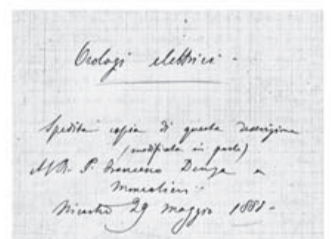 Orologi elettrici -
Spedita copia di questa descrizione
(modificata in parte)
P. Francesco Denza a
Moncalieri -
29 maggio 1881 -